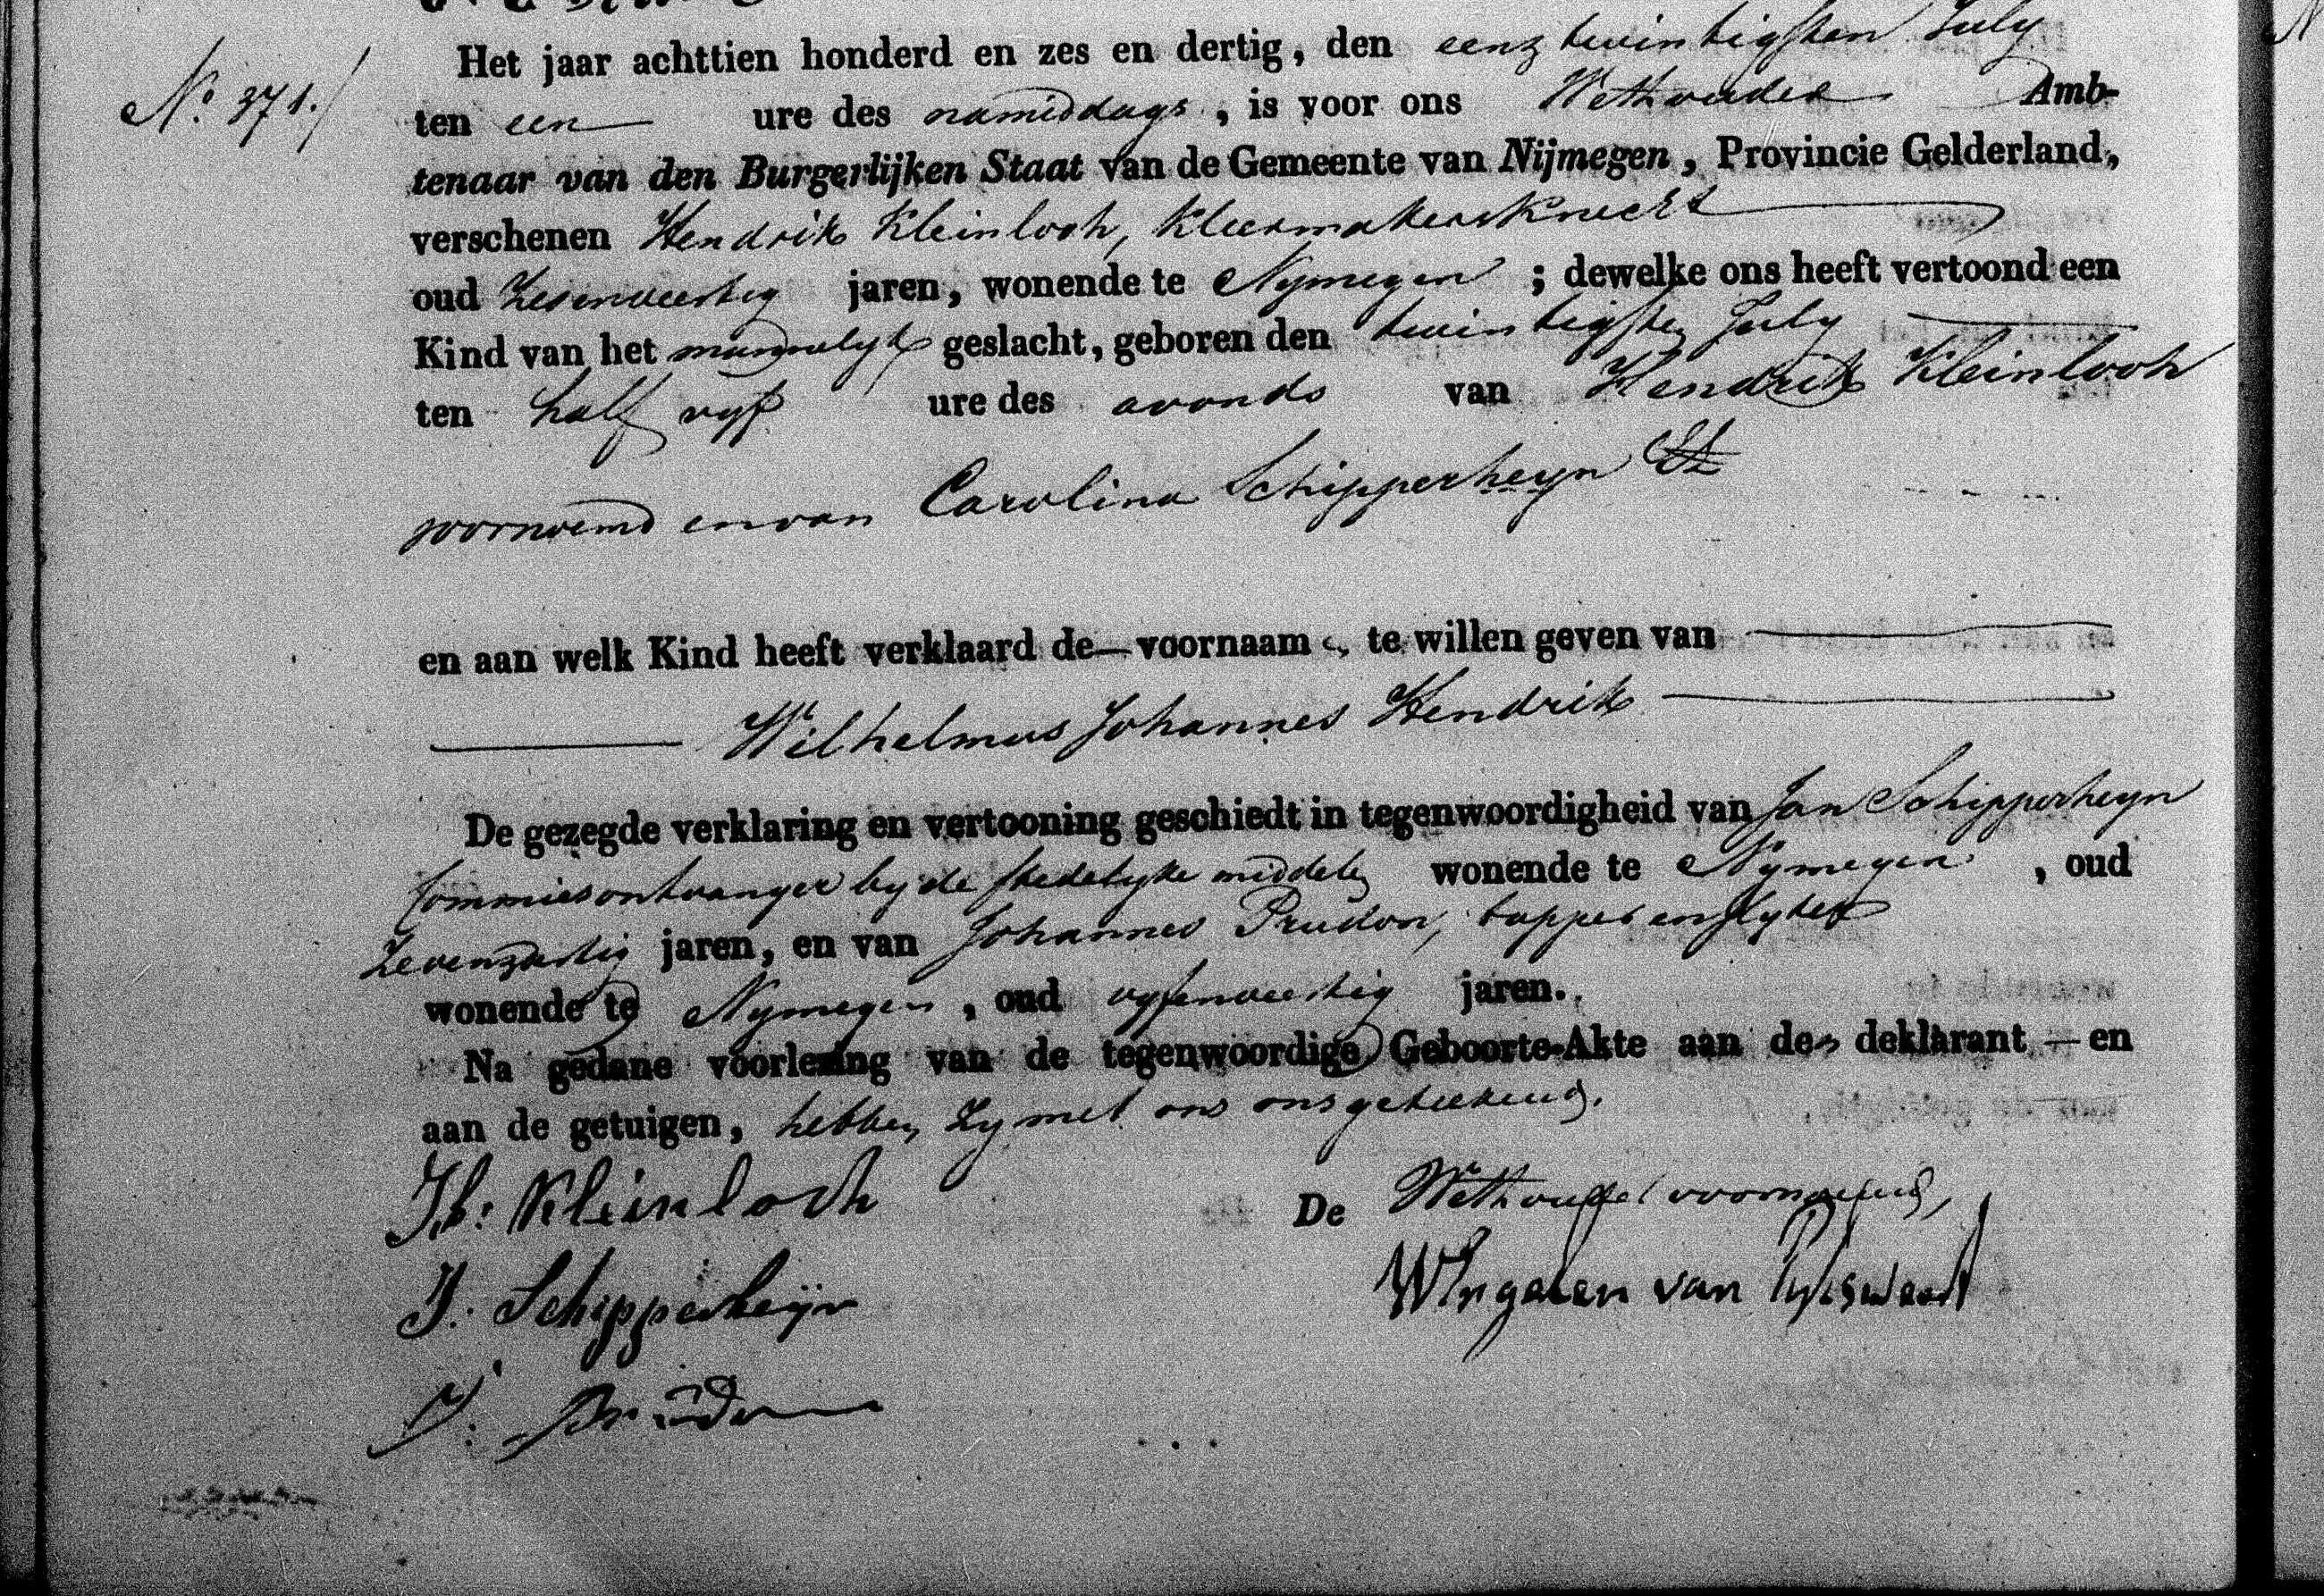 No. 371.
Het jaar achttien honderd en zes en dertig, den eenz twintigsten July
ten een ure des namiddags, is voor ons Wethouder Amb-
tenaar van den Burgerlijken Staat van de Gemeente van Nijmegen, Provincie Gelderland,
verschenen Hendrik Kleinloch, kleermakersknecht
oud Zesenveertig jaren, wonende te Nymegen; dewelke ons heeft vertoond een
Kind van het mannelyk geslacht, geboren den twintigsten July
ten half vyf ure des avonds van Hendrik Kleinloch
voornoemd en van Carolina Schipperheyn
en aan welk Kind heeft verklaard de voornaam te willen geven van
Wilhelmus Johannes Hendrik
De gezegde verklaring en vertooning geschiedt in tegenwoordigheid van Jan Schipperheyn
Commiesontvanger by de stedelyke middelen wonende te Nymegen, oud
jaren, en van Johannes Prudon, tapper en slyter
wonende te Nymegen, oud vyfenveertig jaren.
Na gedane voorlezing van de tegenwoordige Geboorte-Akte aan den deklarant en
aan de getuigen, hebben zy met ons geteekend.
Kleinloch
De Wethouder voornoemd,
J. Schipperheijn
van
J.